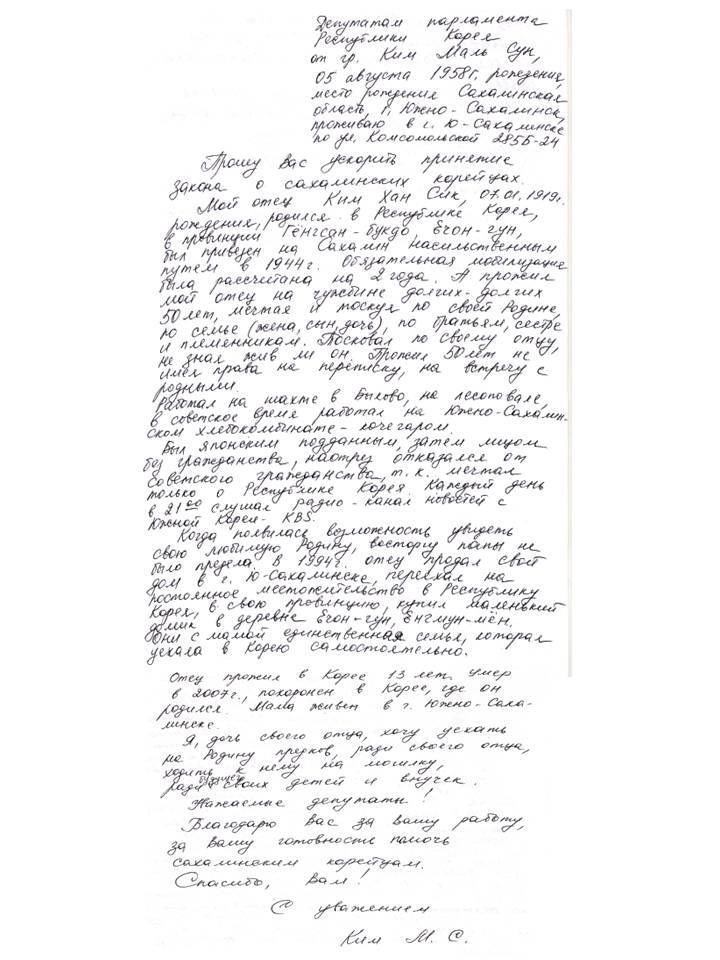 Депутатам парламента
Республики Корея
от гр. Ким Маль Сун,
05 августа 1958г. рождения,
место рождения Сахалинская
область, г. Южно-Сахалинск,
проживаю в г. Ю-Сахалинске
по ул. Комсомольской 285Б-24
Прошу Вас ускорить принятие
закона о сахалинских корейцах.
Мой отец Ким Хан Сик, 07.01.1919г.
рождения, родился в Республике Корея,
в провинции Генгсан-букдо, Ечон-гун,
был привезен на Сахалин насильственным
путем в 1944г. Обязательная мобилизация
была рассчитана на 2 года. А прожил
мой отец на чужбине долгих-долгих
50 лет, мечтая и тоскуя по своей Родине,
по семье (жена, сын, дочь), по братьям, сестре
и племенникам. Тосковал по своему отцу,
не зная жив ли он. Прожил 50 лет не
имея права на переписку, на встречу с
родными.
Работал на шахте в Быково, на лесоповале,
в советское время работал на Южно-Сахалин-
ском хлебокомбинате - кочегаром.
Был японским подданным, затем лицом
без гражданства, наотрез отказался от
советского гражданства, т.к. мечтал
только о Республике Корея. Каждый день
в 21 00 слушал радио-канал новостей с
Южной Кореи - KBS.
Когда появилась возможность увидеть
свою любимую Родину, восторгу папы не
было предела. В 1994г. отец продал свой
дом в г. Ю-Сахалинске, переехал на
постоянное местожительство в Республику
Корея, в свою провинцию, купил маленький
домик в деревне Ечон-гун, Ёнгмун-мён.
Они с мамой единственная семья, которая
уехала в Корею самостоятельно.
Отец прожил в Корее 13 лет. Умер
в 2007г., похоронен в Корее, где он
родился. Мама живет в г. Южно-Саха-
линске.
Я, дочь своего отца, хочу уехать
на Родину предков, ради своего отца,
ходить к нему на могилку,
ради будущего своих детей и внучек.
Уважаемые депутаты!
Благодарю Вас за вашу работу,
за вашу готовность помочь
сахалинским корейцам.
Спасибо, Вам!
С уважением
Ким М. С.